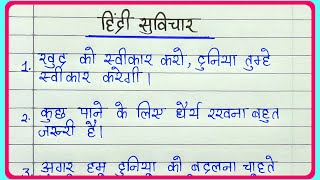 हिंदी सुविचार
1. खुद को स्वीकार करो, दुनिया तुम्हे
स्वीकार करेगी।
2. कुछ पाने के लिए धैर्य रखना बहुत
जरूरी है।
3. अगर हम दुनिया को बदलना चाहते